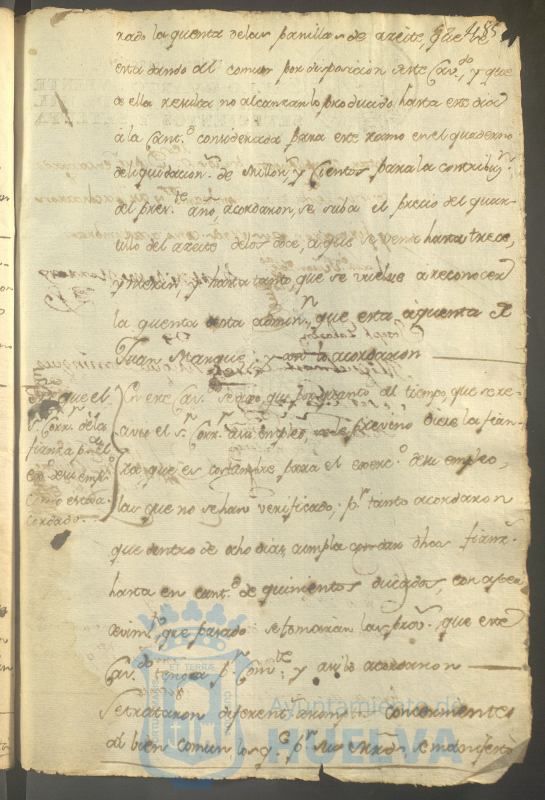 485
rado la quenta de las panillas de azeite, que se
esta dando al comun por disposicion de este Cav.do, y que
de ella resulta no alcanzan lo producido hasta este dia
à la Cant.d considerada para este ramo en el quaderno
de liquidacion de Millon.s y Cientos para la contribuz.n
del pres.te año, acordaron, se suba el precio del quar-
tillo del azeite de los doze, à que se vende hasta treze,
y hasta tanto que se vuelve a reconocer
la quenta de esta admin.n que esta à quenta de
Juan Marque; y asi lo acordaron
que el
s.r Corr.r dè la
fianza p.a el
ex.o de su empl.o
como està a
cordado
En este Cav.do se dijo, que por quanto al tiempo, que se re-
civio el s.r Corr.r a su empleo, se le previno diese la fian-
za que es costumbre para el exerc.o de su empleo,
la que no se han verificado; p.r tanto acordaron
que dentro de ocho dias, cumpla con dar dhas fianz.s
hasta en cant.d de quinientos ducados, con aperci-
vim.to, que pasado se tomaran las prov.s que este
Cav.do tenga p.r Comb.te y asi lo acordaron
Se trataron diferent.s concernientes
al bien comun los q.e p.r sus Mrds se manifestò
Ayuntamiento de
HUELVA